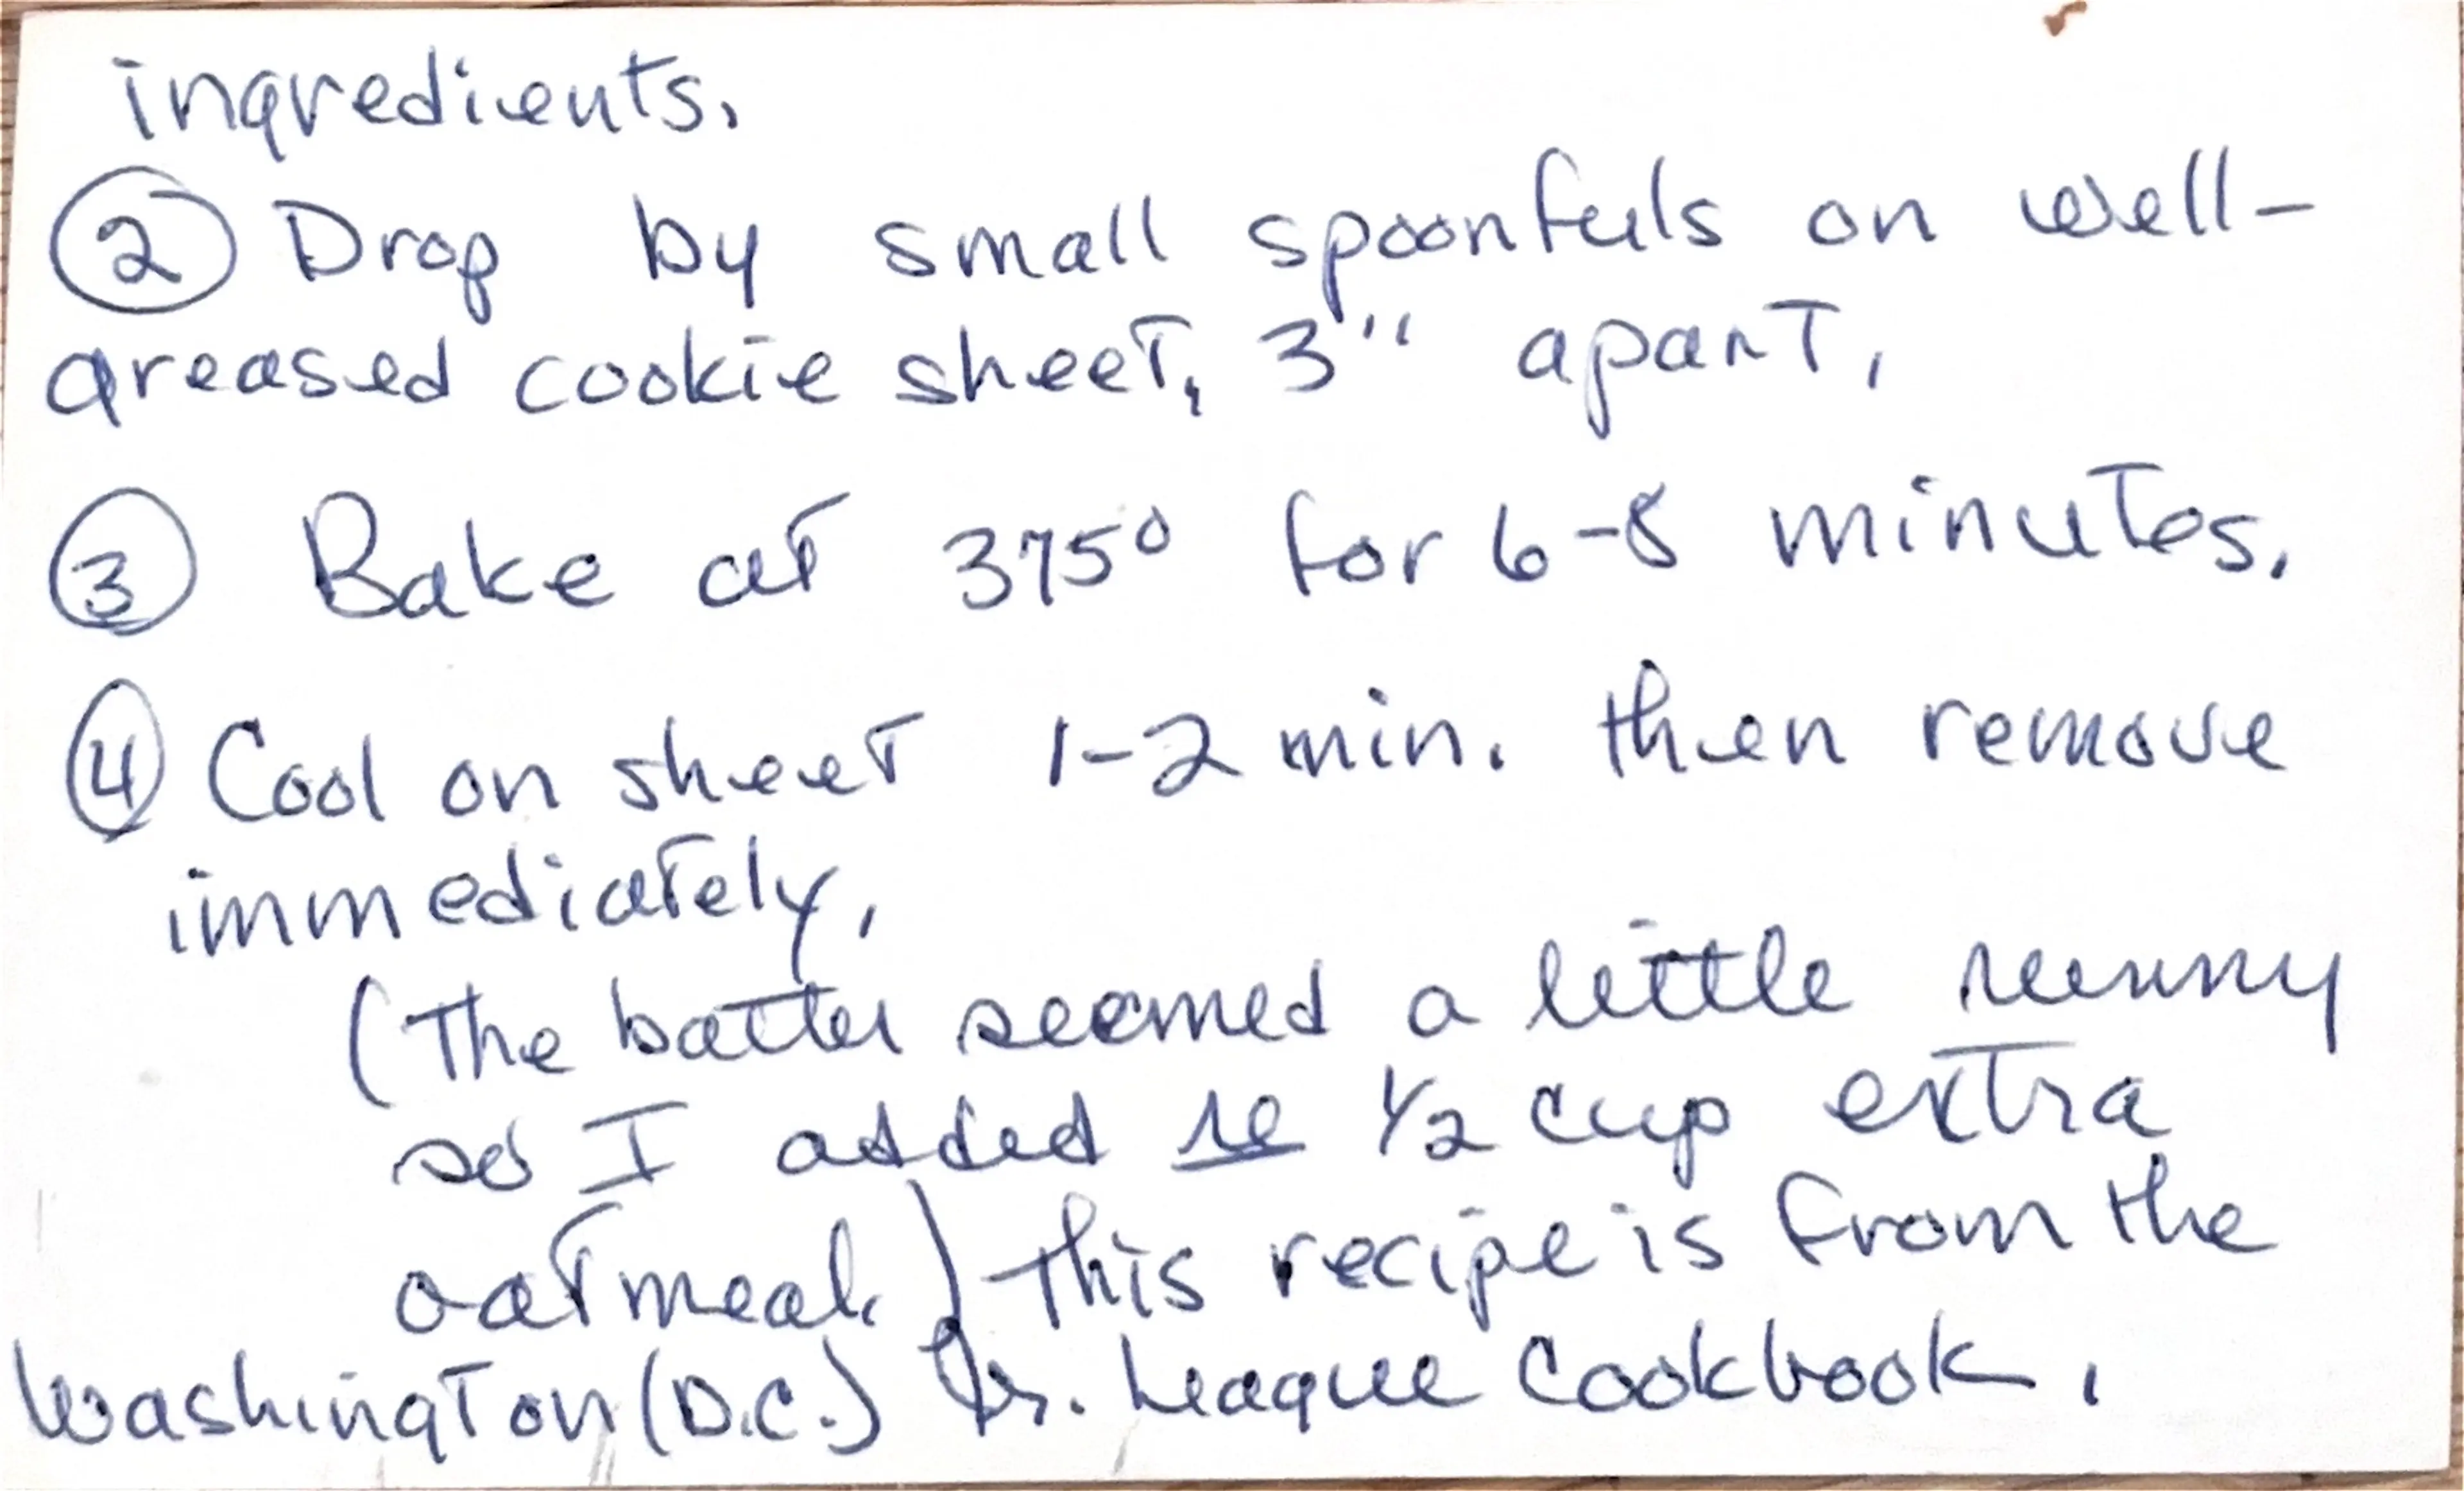 ingredients.
② Drop by small spoonfuls on well-
greased cookie sheet, 3" apart.
③ Bake at 375° for 6-8 minutes.
④ Cool on sheet 1-2 min. then remove
immediately.
(The batter seemed a little runny
so I added 1/2 cup extra
oatmeal.) This recipe is from the
Washington (D.C.) Jr. League Cookbook.